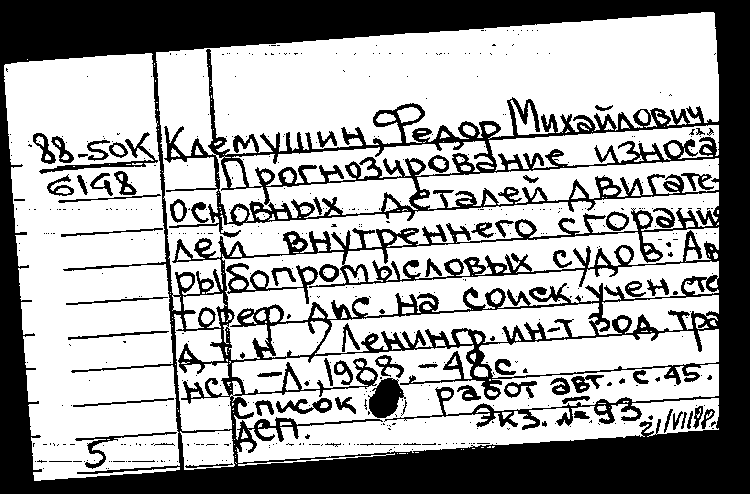 88-50К Клемушин, Федор Михайлович.
6148
Прогнозирование износа
основных деталей двигате-
лей внутреннего сгорания
рыбопромысловых судов: Ав
тореф. дис. на соиск. учен. сте
д.т.н. / Ленингр. ин-т вод. тра
нсп. - Л., 1988. - 48 с.
Список работ авт.: с. 45.
ДСП. Экз. № 93.
5